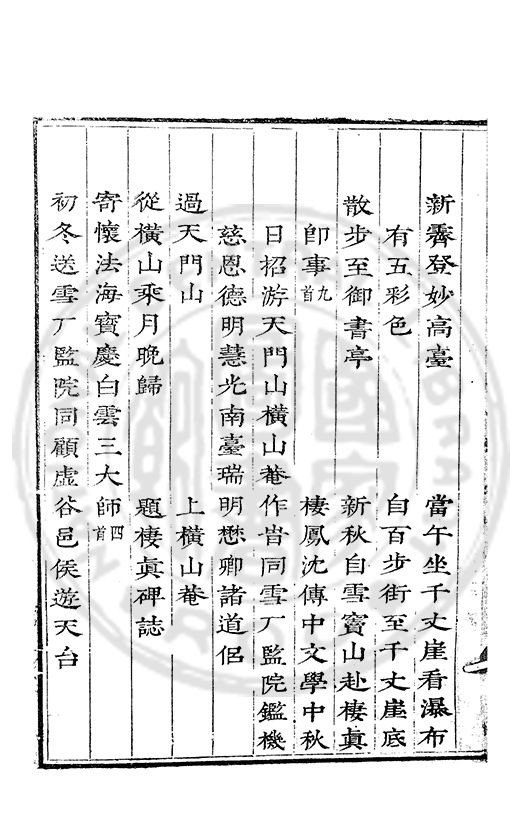 新霽登妙高臺　當午坐千丈崖看瀑布
有五彩色　自百步街至千丈崖底
散步至御書亭　新秋自雪竇山赴棲眞
卽事九首　棲鳳沈傳中文學中秋
日招游天門山橫山菴作旹同雪厂監院鑑機
慈恩德明慧光南臺瑞明懋卿諸道侶
過天門山　上橫山菴
從橫山乘月晚歸　題棲眞碑誌
寄懷法海寶慶白雲三大師四首
初冬送雪厂監院同顧虛谷邑侯遊天台